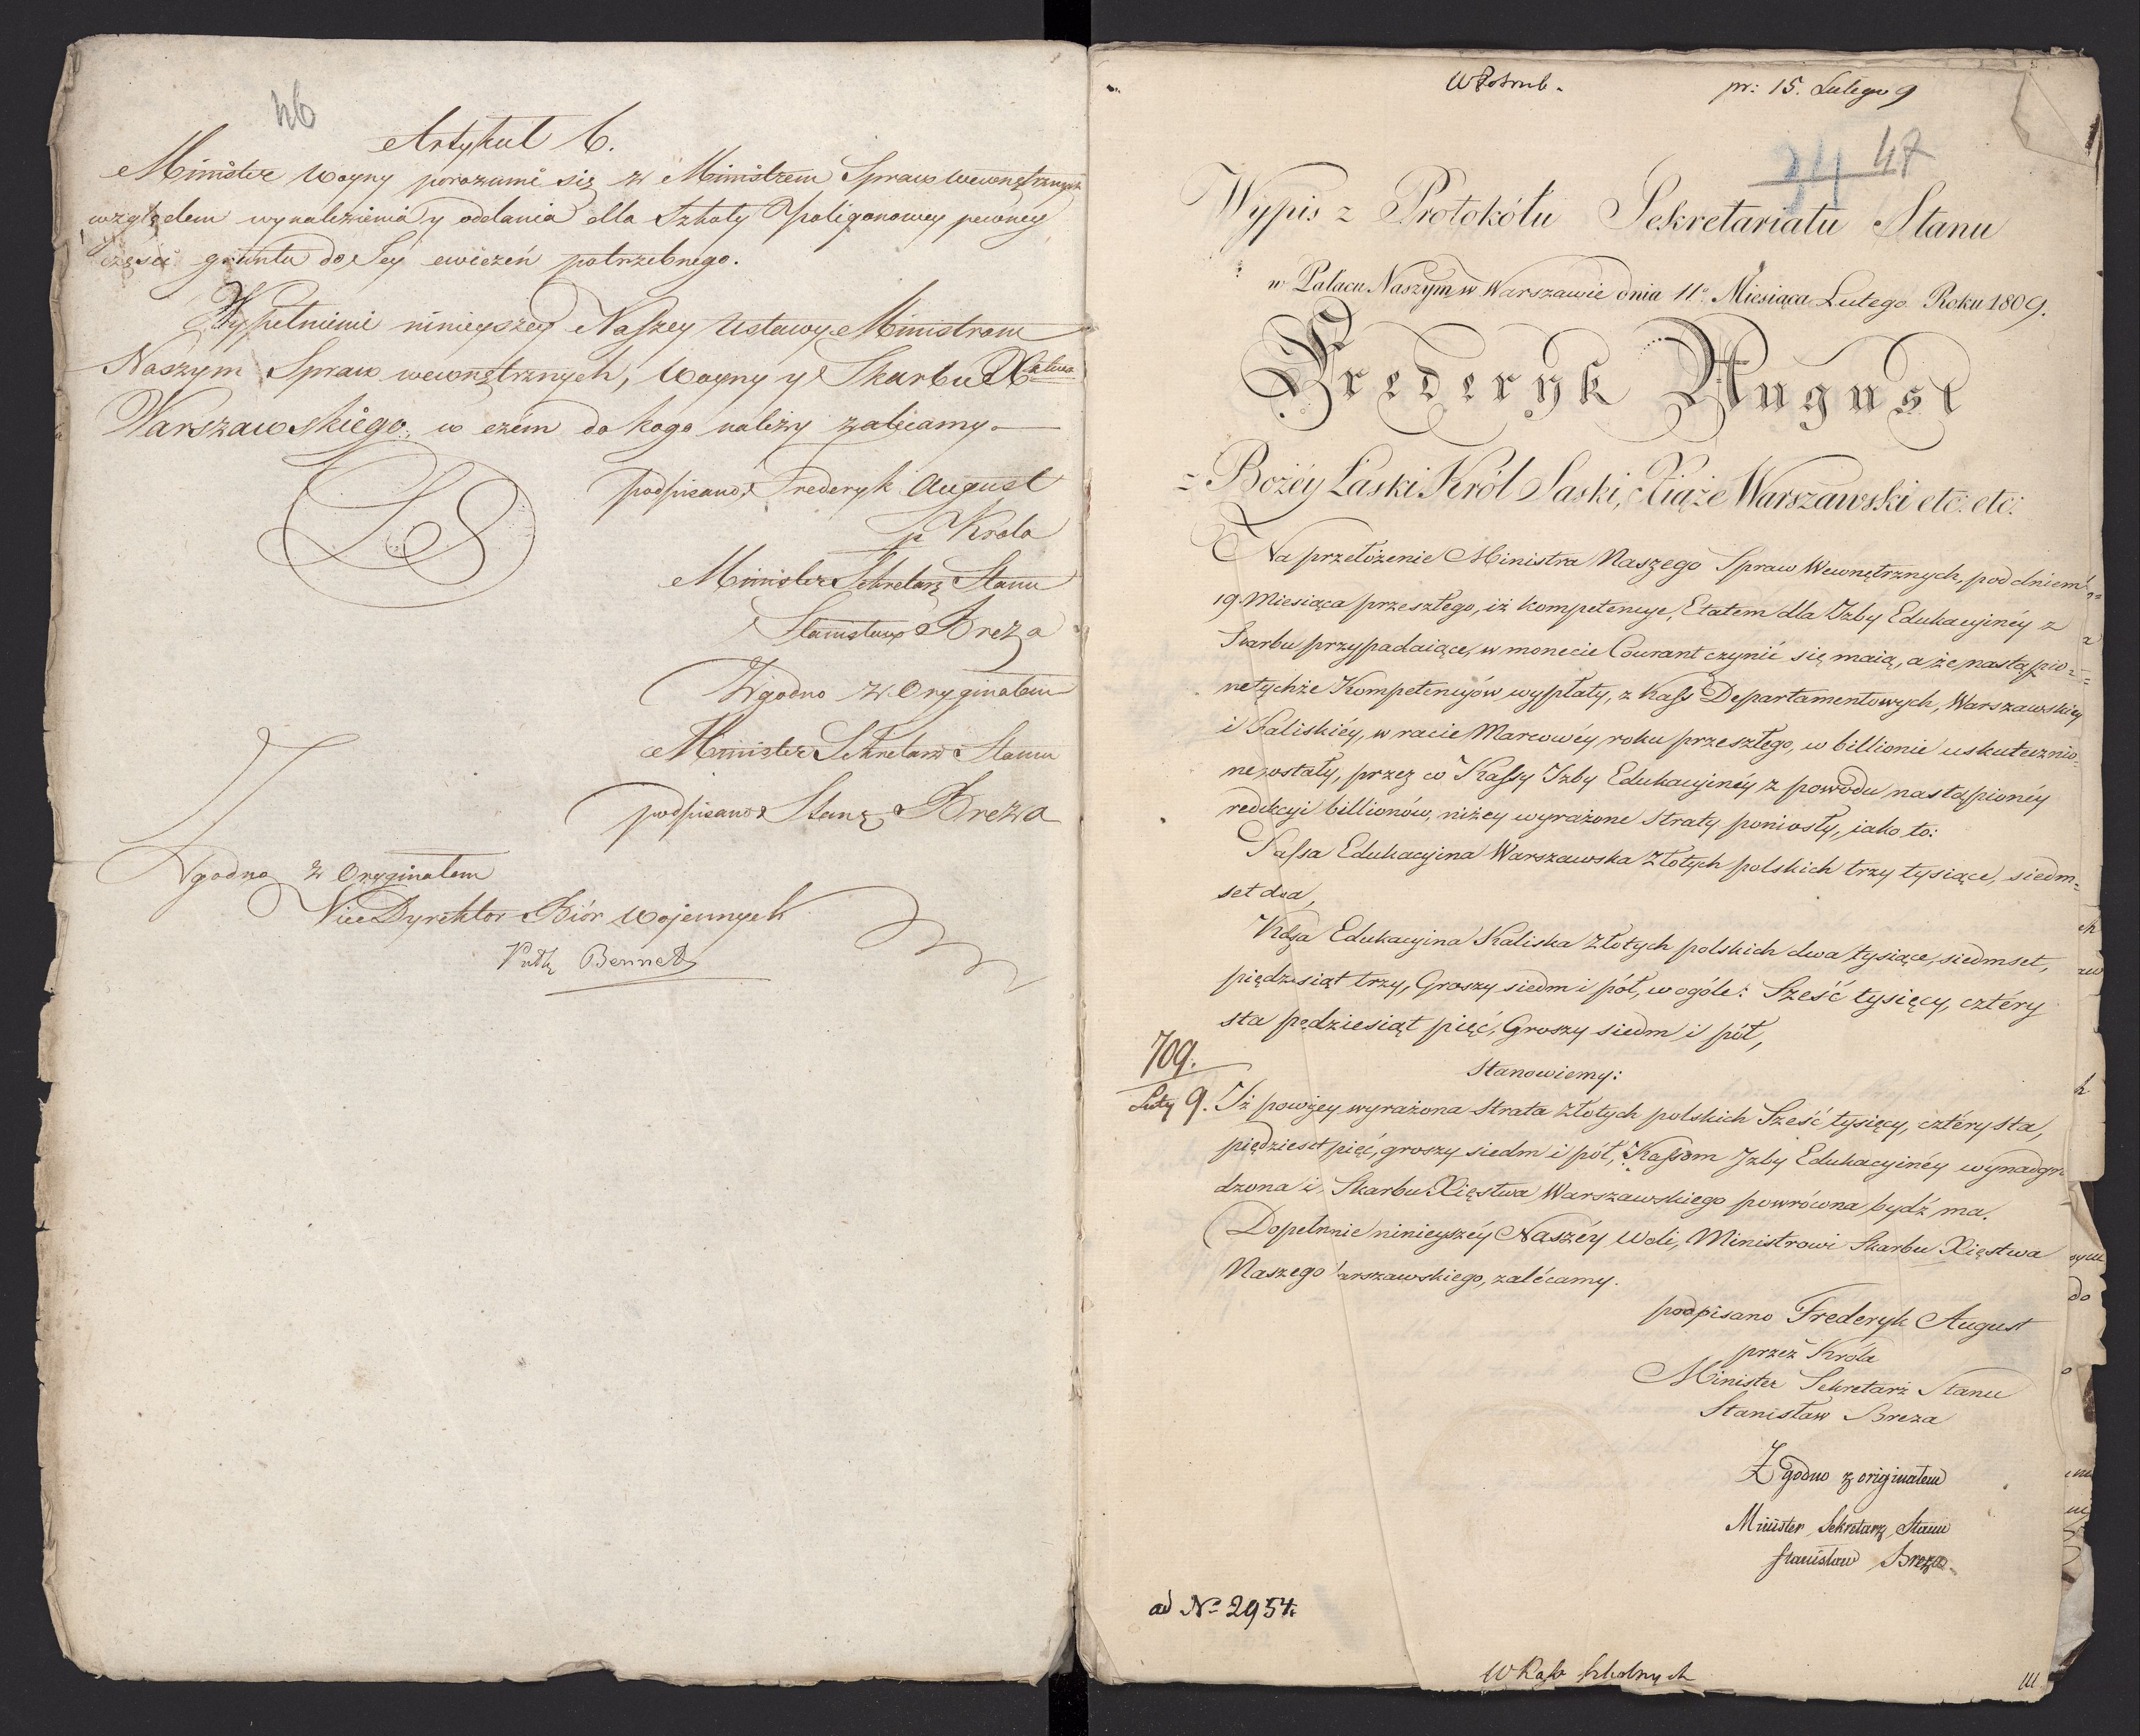 46
Artykuł 6.
Minister Woyny porozumi się z Ministrem Spraw wewnętrznych
względem wynalezienia y oddania dla Szkoły Poligonowey pewney
części gruntu do Jey ćwiczeń potrzebnego.
Wypełnienie ninieyszey Naszey Ustawy Ministrom
Naszym Spraw wewnętrznych, Woyny y Skarbu X
Warszawskiego, w czém do kogo należy zalecamy.
LS
podpisano, Frederyk August
p. Króla
Minister Sekretarz Stanu
Stanisław Breza
Zgodno z Oryginałem
Minister Sekretarz Stanu
podpisano Stan: Breza
Zgodno z Oryginałem
Vice Dyrektor Biór Wojennych
Bennet
pr: 15. Lutego 9
34 47
Wypis z Protokółu Sekretariatu Stanu
w Pałacu Naszym w Warszawie dnia 11o Miesiąca Lutego Roku 1809.
Frederyk August
z Bożéy Łaski Król Saski, Xiąże Warszawski etc: etc:
Na przełożenie Ministra Naszego Spraw Wewnętrznych, pod dniem
19. Miesiąca przeszłego, iż kompetencye, Etatem dla Izby Edukacyinéy z
Skarbu przypadaiące, w monecie Courant czynić się maią, a że nastąpio-
ne tychże Kompetencyów wypłaty, z Kass Departamentowych, Warszawskiey
i Kaliskiéy, w racie Marcowéy roku przeszłego, w billionie uskutecznio-
ne zostały, przez co Kassy Izby Edukacyinéy z powodu nastąpionéy
redukcyi billionów, niżey wyrażone straty poniosły, iako to:
Kassa Edukacyina Warszawska Złotych polskich trzy tysiące, siedm-
set dwa,
Kassa Edukacyina Kaliska Złotych polskich dwa tysiące, siedmset,
piędziesiąt trzy, Groszy siedm i pół, w ogóle: Sześć tysięcy, cztéry
sta pędziesiąt pięć, Groszy siedm i pół,
Stanowiemy:
709.
Luty 9.
Iż powyżey wyrażona strata złotych polskich Sześć tysięcy, cztéry sta,
piędziesiąt pięć, groszy siedm i pół, Kassom Izby Edukacyinéy wynadgro
dzona i, Skarbu Xięstwa Warszawskiego powrócona bydź ma.
Dopełnnie ninieyszéy Naszéy Woli, Ministrowi Skarbu Xięstwa
Naszego Warszawskiego, zalécamy.
podpisano Frederyk August
przez Króla
Minister Sekretarz Stanu
Stanisław Breza
Zgodno z originałem
Minister Sekretarz Stanu
Stanisław Breza.
ad No 2954.